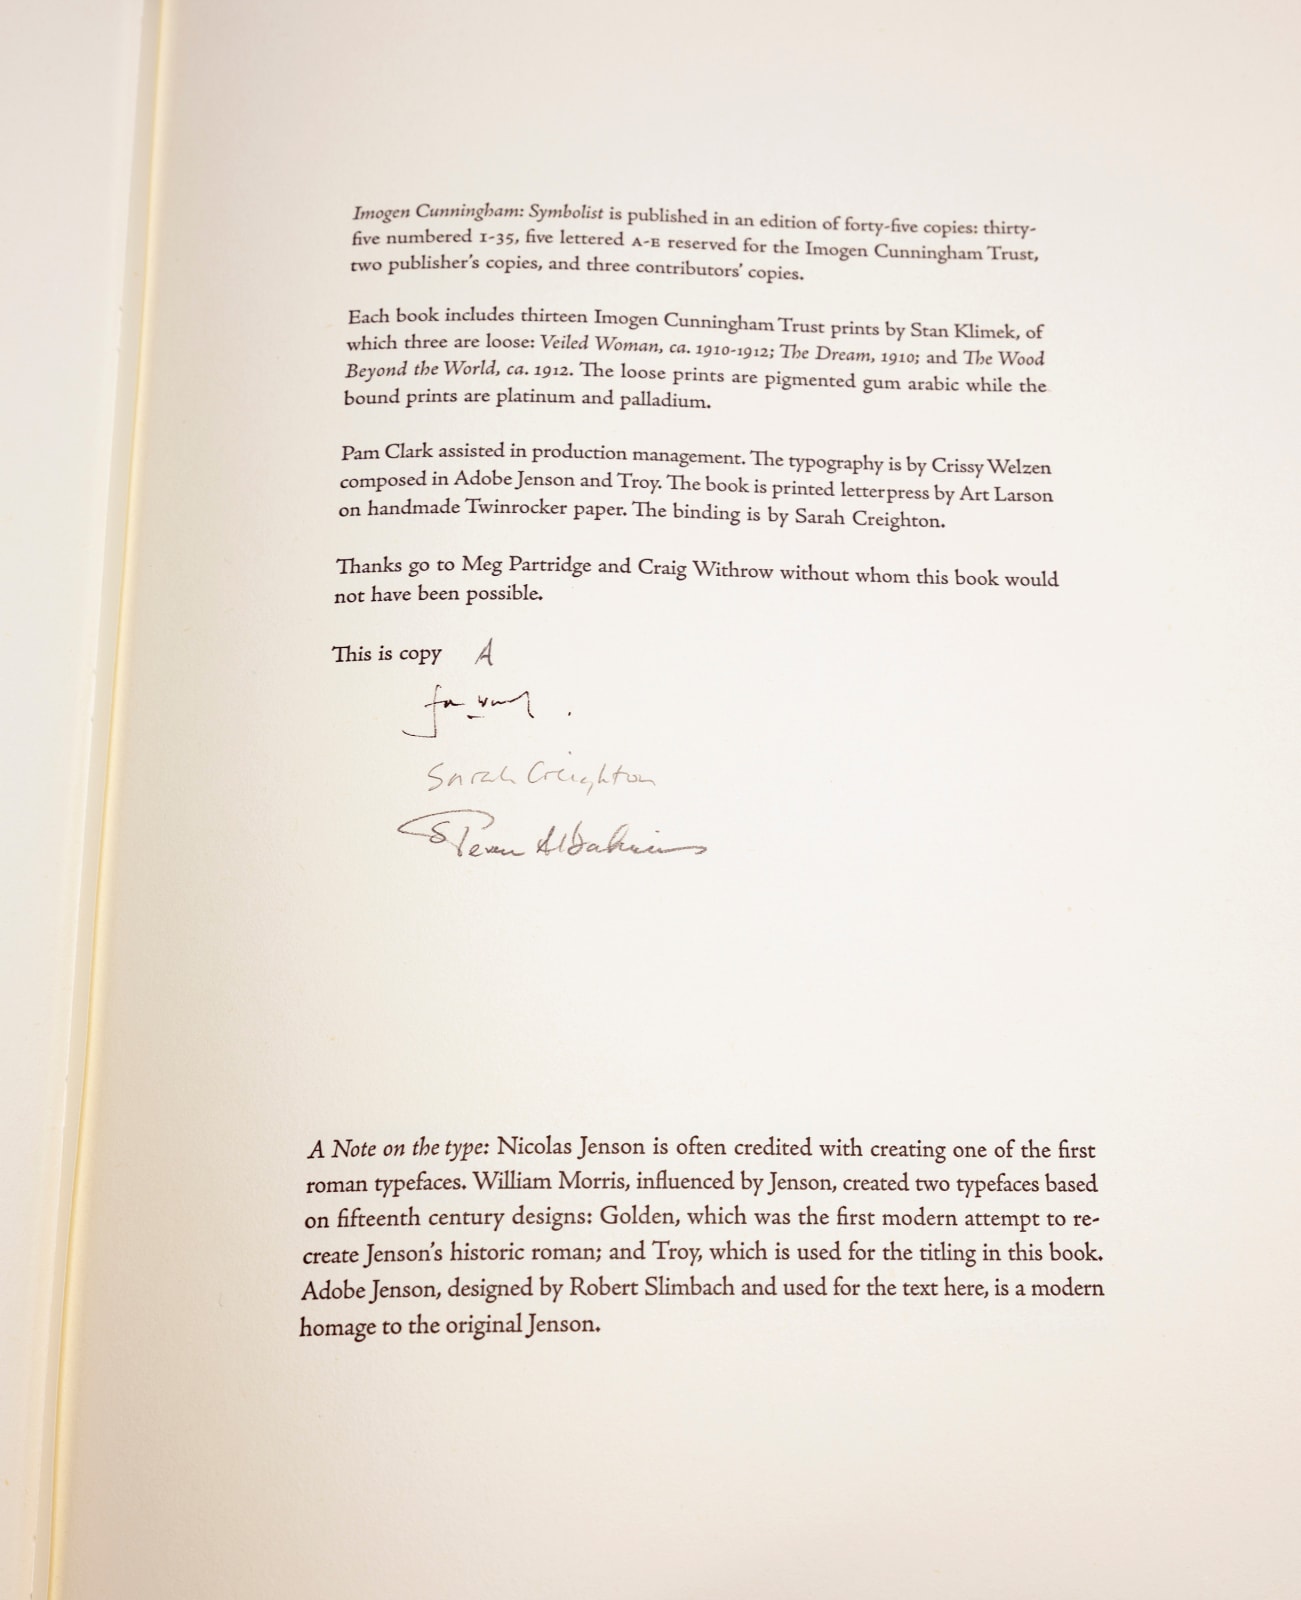 Imogen Cunningham: Symbolist is published in an edition of forty-five copies: thirty-
five numbered 1-35, five lettered A-E reserved for the Imogen Cunningham Trust,
two publisher's copies, and three contributors' copies.
Each book includes thirteen Imogen Cunningham Trust prints by Stan Klimek, of
which three are loose: Veiled Woman, ca. 1910-1912; The Dream, 1910; and The Wood
Beyond the World, ca. 1912. The loose prints are pigmented gum arabic while the
bound prints are platinum and palladium.
Pam Clark assisted in production management. The typography is by Crissy Welzen
composed in Adobe Jenson and Troy. The book is printed letterpress by Art Larson
on handmade Twinrocker paper. The binding is by Sarah Creighton.
Thanks go to Meg Partridge and Craig Withrow without whom this book would
not have been possible.
This is copy A
Sarah Creighton
Steven Albahari
A Note on the type: Nicolas Jenson is often credited with creating one of the first
roman typefaces. William Morris, influenced by Jenson, created two typefaces based
on fifteenth century designs: Golden, which was the first modern attempt to re-
create Jenson's historic roman; and Troy, which is used for the titling in this book.
Adobe Jenson, designed by Robert Slimbach and used for the text here, is a modern
homage to the original Jenson.